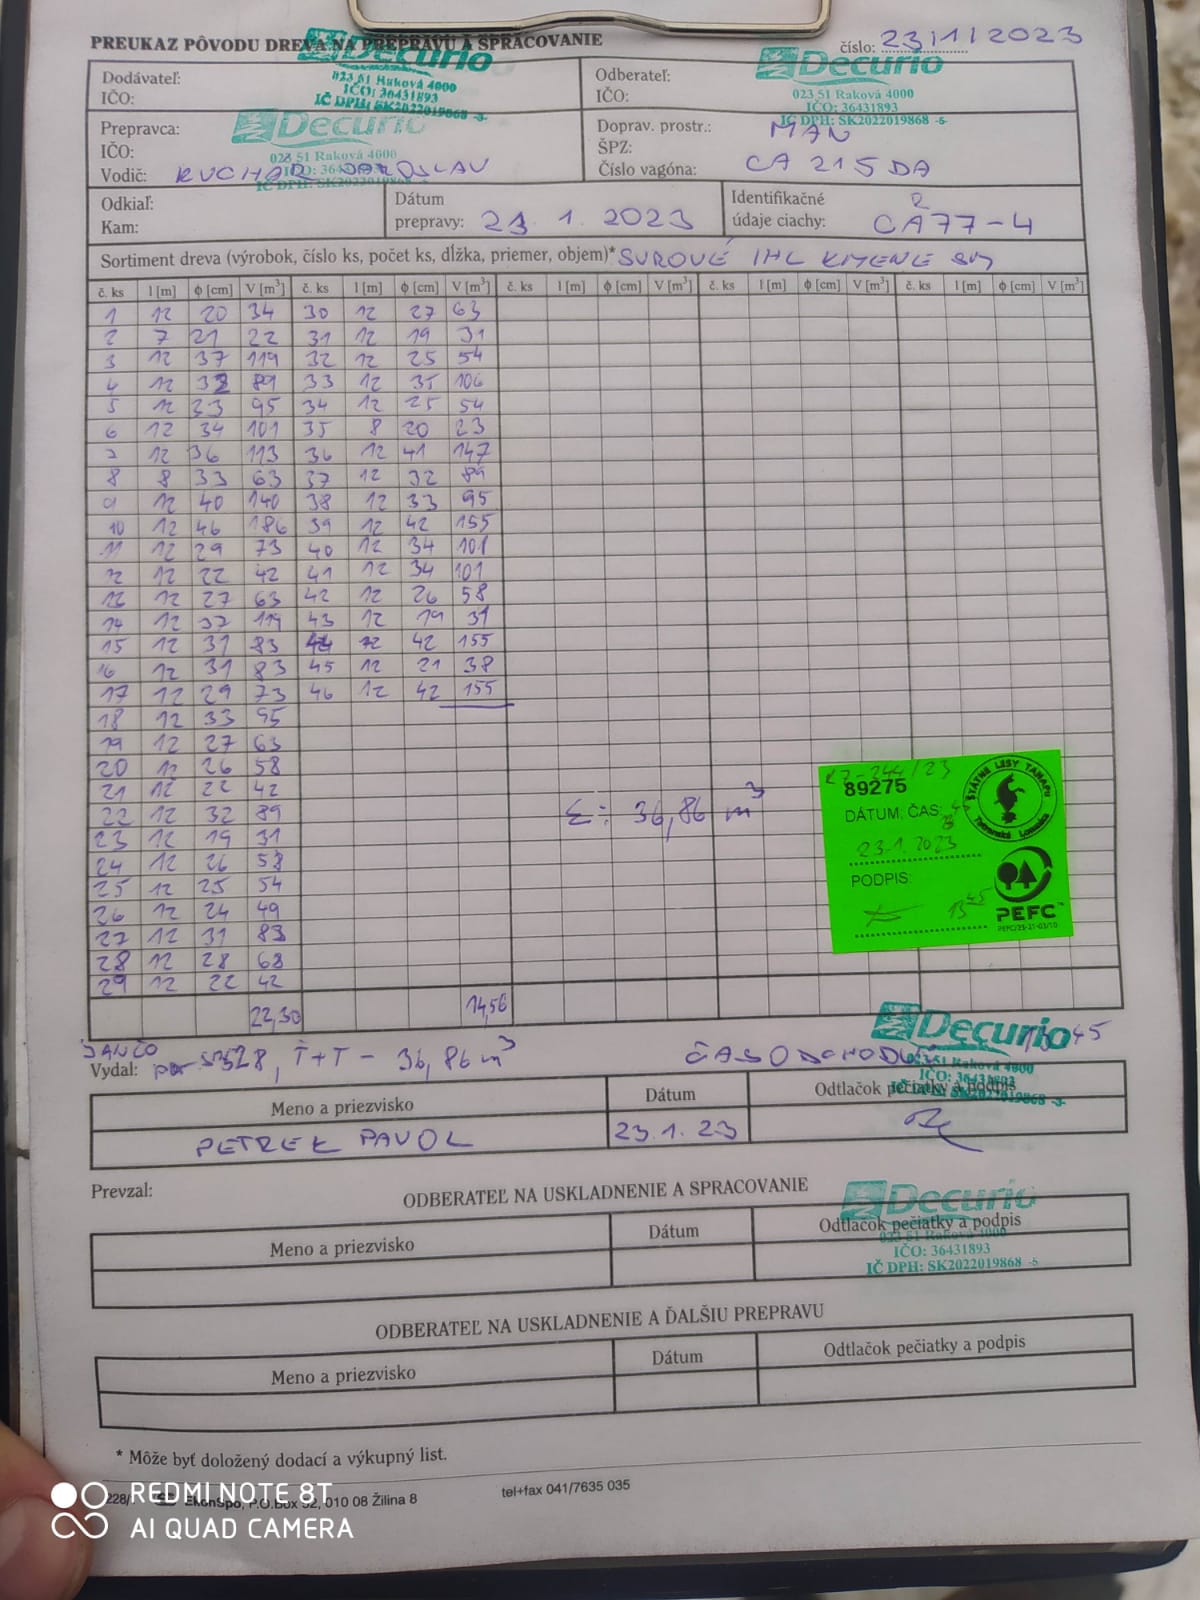 PREUKAZ PÔVODU DREVA NA PREPRAVU A SPRACOVANIE
číslo: 23/1/2023
Decurio
023 51 Raková 4000
IČO: 36431893
IČ DPH: SK2022019868 -3-
Decurio
023 51 Raková 4000
IČO: 36431893
IČ DPH: SK2022019868 -5-
Dodávateľ:
IČO:
Odberateľ:
IČO:
Prepravca:
IČO:
Vodič: KUCHAR JAROSLAV
Decurio
023 51 Raková 4000
Doprav. prostr.: MAN
ŠPZ:
Číslo vagóna: CA 215 DA
Odkiaľ:
Kam:
Dátum
prepravy: 23. 1. 2023
Identifikačné
údaje ciachy: CA77-4
Sortiment dreva (výrobok, číslo ks, počet ks, dĺžka, priemer, objem)* SUROVÉ IHL KMENE SM
č. ks l [m] ϕ [cm] V [m³] č. ks l [m] ϕ [cm] V [m³] č. ks l [m] ϕ [cm] V [m³] č. ks l [m] ϕ [cm] V [m³] č. ks l [m] ϕ [cm] V [m³]
1 12 20 34 30 12 27 63
2 7 21 22 31 12 19 31
3 12 37 119 32 12 25 54
4 12 32 89 33 12 35 106
5 12 33 95 34 12 25 54
6 12 34 101 35 8 20 23
7 12 36 113 36 12 41 147
8 8 33 63 37 12 32 89
9 12 40 140 38 12 33 95
10 12 46 186 39 12 42 155
11 12 29 73 40 12 34 101
12 12 22 42 41 12 34 101
13 12 27 63 42 12 26 58
14 12 37 119 43 12 19 31
15 12 31 83 44 12 42 155
16 12 31 83 45 12 21 38
17 12 29 73 46 12 42 155
18 12 33 95
19 12 27 63
20 12 26 58
21 12 22 42
22 12 32 89
23 12 19 31
24 12 26 58
25 12 25 54
26 12 24 49
27 12 31 83
28 12 28 68
29 12 22 42
22,30 14,56
Σ: 36,86 m³
89275
DÁTUM; ČAS:
23.1.2023
PODPIS:
13 45
ŠTÁTNE LESY TANAPU
Tatranská Lomnica
PEFC™
PEFC/23-21-03/10
JANČO
Vydal: 528, T+T - 36,86 m³
ČAS ODCHODU 13 45
Decurio
023 51 Raková 4000
IČO: 36431893
Meno a priezvisko Dátum Odtlačok pečiatky a podpis
PETREK PAVOL 23.1.23
Prevzal:
ODBERATEĽ NA USKLADNENIE A SPRACOVANIE
Decurio
Meno a priezvisko Dátum Odtlačok pečiatky a podpis
023 51 Raková 4000
IČO: 36431893
IČ DPH: SK2022019868 -5-
ODBERATEĽ NA USKLADNENIE A ĎALŠIU PREPRAVU
Meno a priezvisko Dátum Odtlačok pečiatky a podpis
* Môže byť doložený dodací a výkupný list.
EkonSpo, P.O.Box 52, 010 08 Žilina 8
tel+fax 041/7635 035
REDMI NOTE 8T
AI QUAD CAMERA